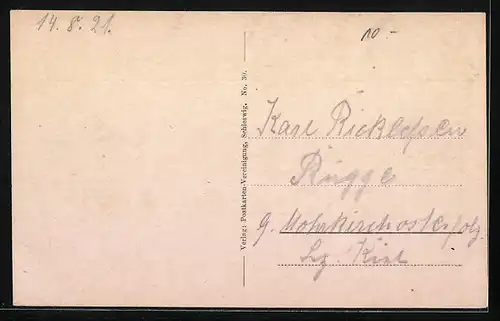 14. 8. 21.
10.-
Verlag: Postkarten-Vereinigung, Schleswig. No. 39.
Karl Ricklefsen
Rügge
g. Mohrkirchosterholz
Lg. Kiel